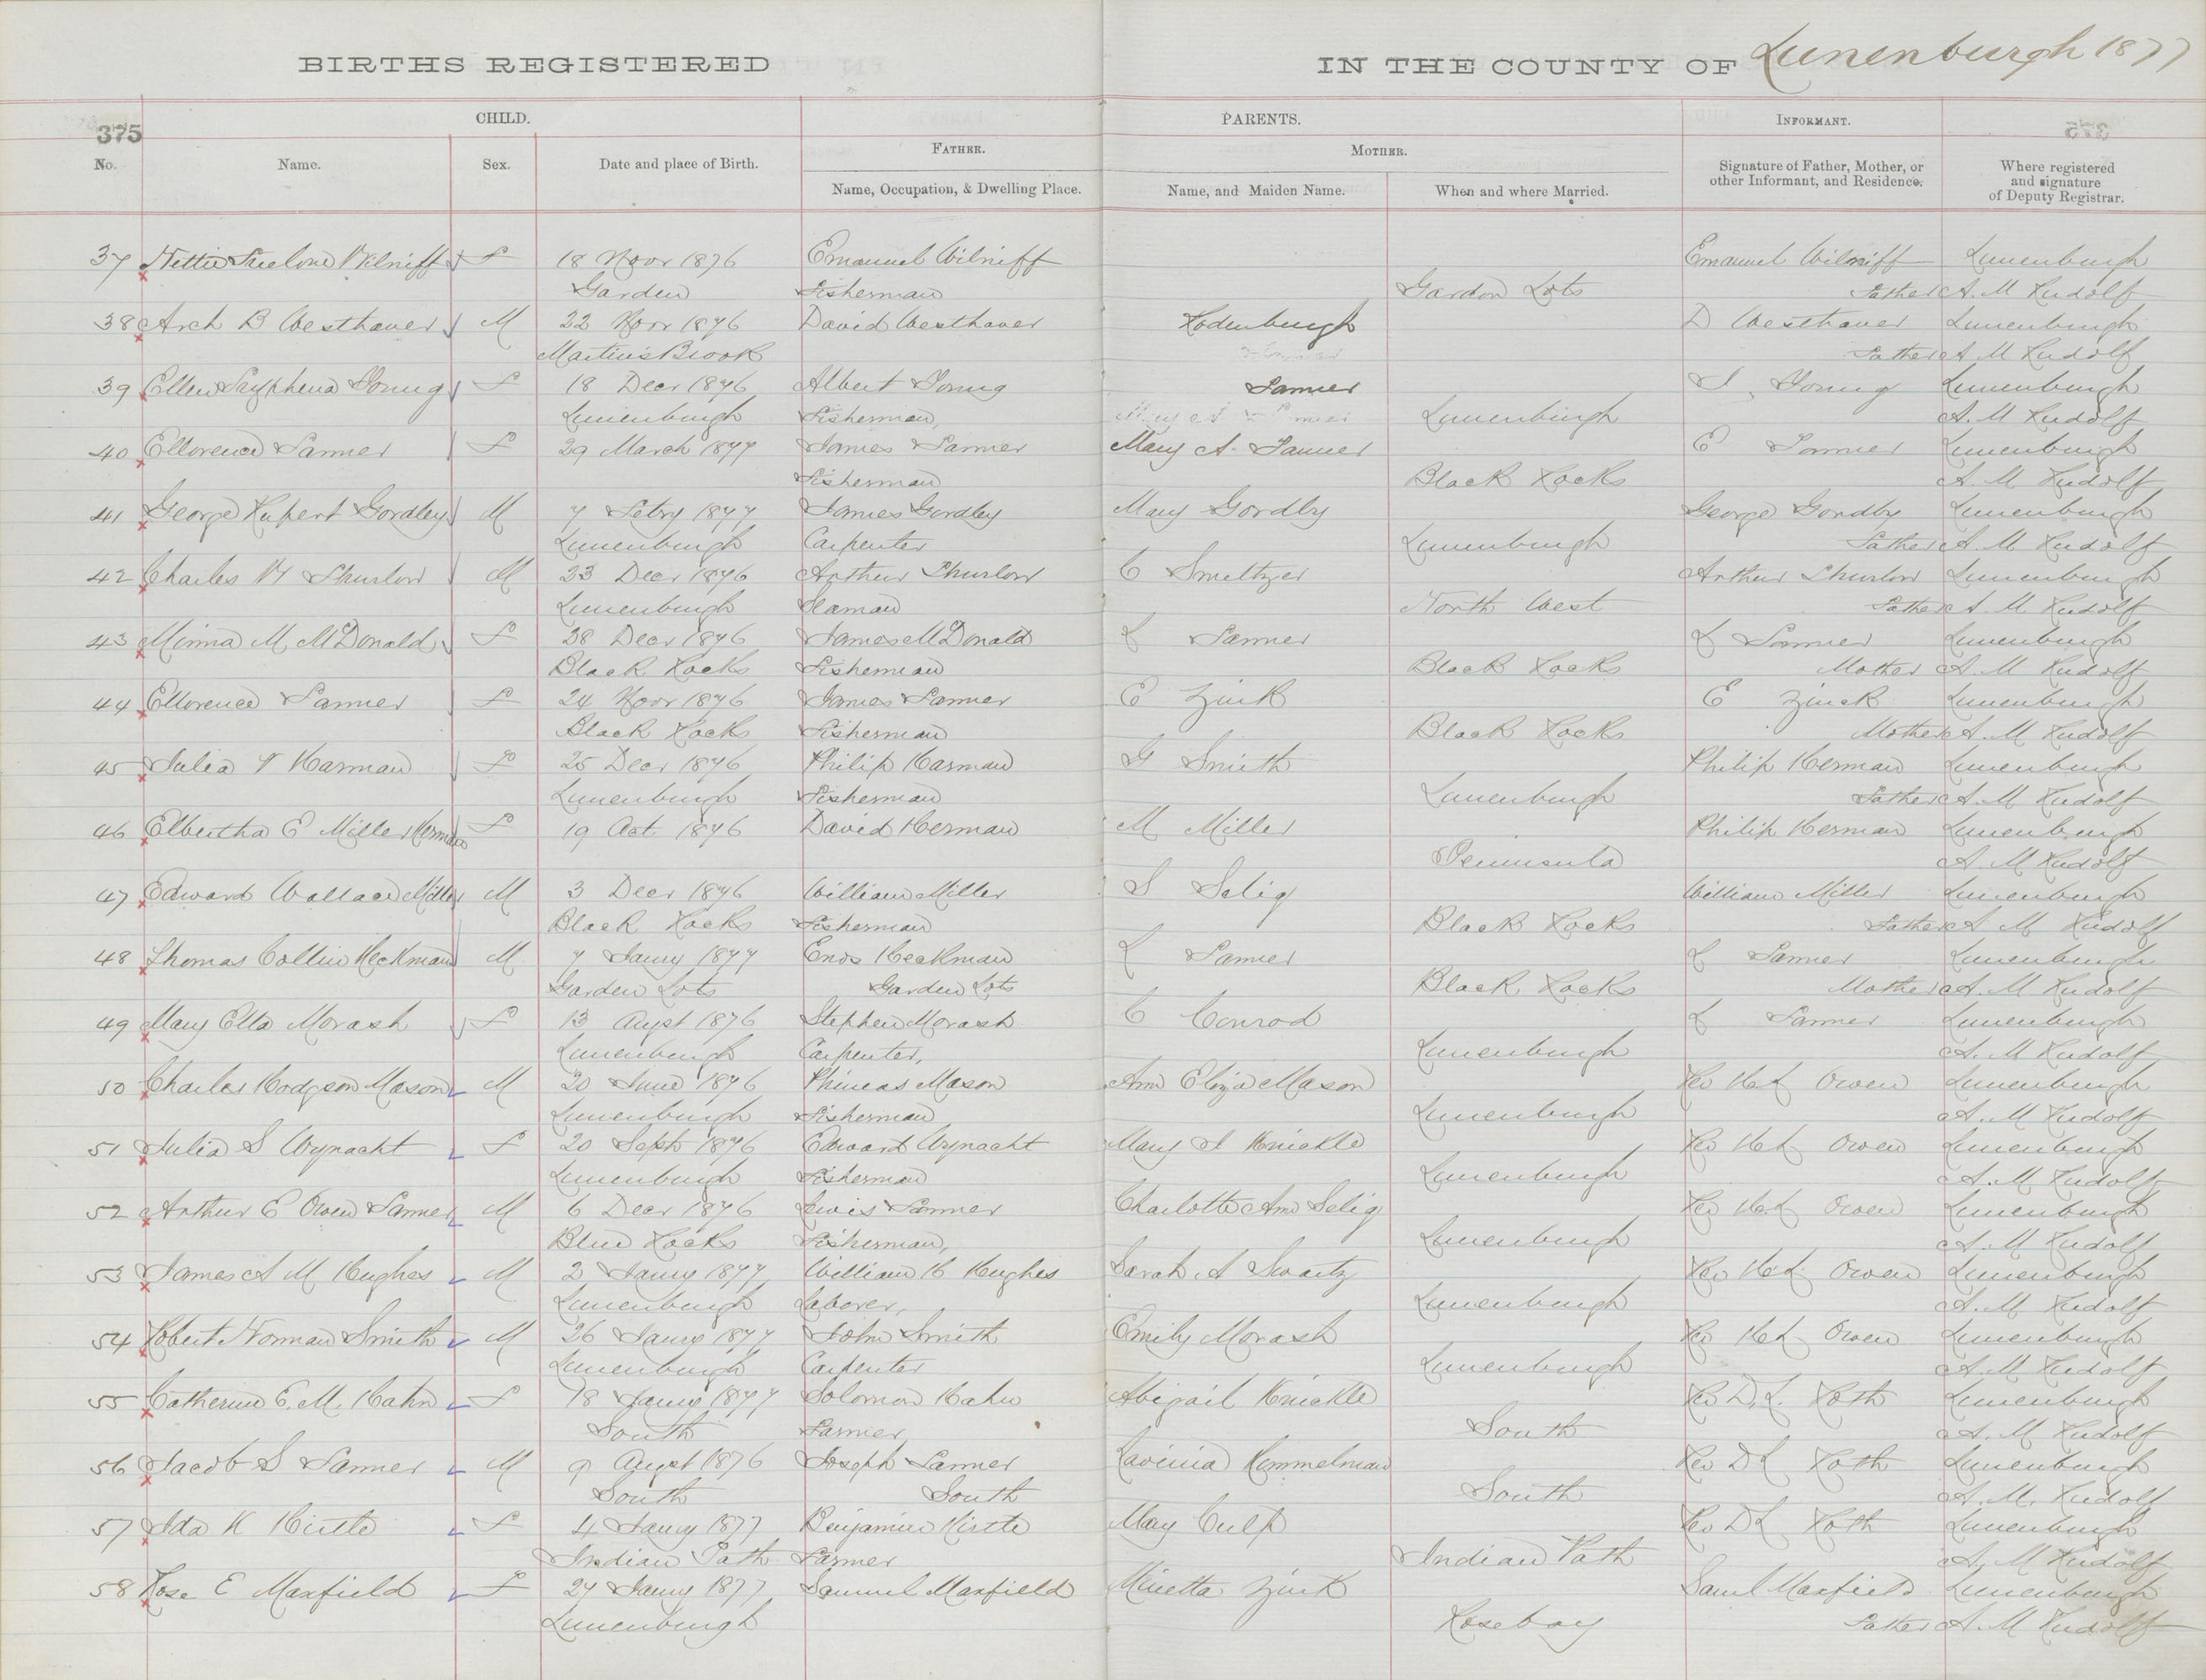 BIRTHS REGISTERED IN THE COUNTY OF Lunenburgh 1877
375
CHILD. PARENTS. INFORMANT.
No. Name. Sex. Date and place of Birth. FATHER. MOTHER. Signature of Father, Mother, or other Informant, and Residence. Where registered and signature of Deputy Registrar.
Name, Occupation, & Dwelling Place. Name, and Maiden Name. When and where Married.
37 Nettie Wilniff F 18 Novr 1876 Emanuel Wilniff Emanuel Wilniff Lunenburgh
Garden Fisherman Garden Lots Father A. M Rudolf
38 Arch B Westhaver M 22 Novr 1876 David Westhaver Rodenburgh D Westhaver Lunenburgh
Martin's Brook Father A M Rudolf
39 Ellen Tryphena Young F 18 Decr 1876 Albert Young Tanner Young Lunenburgh
Lunenburgh Fisherman, Lunenburgh A. M Rudolf
40 Ellorence Tanner F 29 March 1877 James Tanner Mary A. Tanner E Tanner Lunenburgh
Fisherman Black Rocks A. M Rudolf
41 George Rupert Gordley M 7 Febry 1877 James Gordley Mary Gordby George Gordby Lunenburgh
Lunenburgh Carpenter Lunenburgh Father A. M Rudolf
42 Charles W Thurlow M 23 Decr 1876 Arthur Thurlow C Smeltzer Arthur Thurlow Lunenburgh
Lunenburgh Seaman North West Father A. M Rudolf
43 Minna M McDonald F 28 Decr 1876 James McDonald L Tanner L Tanner Lunenburgh
Black Rocks Fisherman Black Rocks Mother A. M Rudolf
44 Ellorence Tanner F 24 Novr 1876 James Tanner E Zink E Zinck Lunenburgh
Black Rocks Fisherman Black Rocks Mother A. M Rudolf
45 Julia V Harman F 25 Decr 1876 Philip Harman G Smith Philip Herman Lunenburgh
Lunenburgh Fisherman Lunenburgh Father A. M Rudolf
46 Elbertha E Miller Herman F 19 Oct 1876 David Herman M Miller Philip Herman Lunenburgh
Peninsula A. M Rudolf
47 Edward Wallace Miller M 3 Decr 1876 William Miller S Selig William Miller Lunenburgh
Black Rocks Fisherman Black Rocks Father A M Rudolf
48 Thomas Collin Heckman M 7 Jany 1877 Enos Heckman L Tanner L Tanner Lunenburgh
Garden Lots Garden Lots Black Rocks Mother A. M Rudolf
49 Mary Etta Morash F 13 Augst 1876 Stephen Morash C Conrod L Tanner Lunenburgh
Lunenburgh Carpenter, Lunenburgh A. M Rudolf
50 Charles Hodgson Mason M 20 June 1876 Phineas Mason Ann Eliza Mason Rev H L Owen Lunenburgh
Lunenburgh Fisherman Lunenburgh A. M Rudolf
51 Julia S Wynacht F 20 Septr 1876 Edward Wynacht Mary I Knickle Rev H L Owen Lunenburgh
Lunenburgh Fisherman Lunenburgh A. M Rudolf
52 Arthur E Owen Tanner M 6 Decr 1876 Lewis Tanner Charlotte Ann Selig Rev H. L Owen Lunenburgh
Blue Rocks Fisherman, Lunenburgh A. M Rudolf
53 James A M Hughes M 2 Jany 1877 William H Hughes Sarah A Swartz Rev H L Owen Lunenburgh
Lunenburgh Laborer, Lunenburgh A. M Rudolf
54 Robert Norman Smith M 26 Jany 1877 John Smith Emily Morash Rev H L Owen Lunenburgh
Lunenburgh Carpenter Lunenburgh A. M Rudolf
55 Catherine E. M. Hahn F 18 Jany 1877 Solomon Hahn Abigail Knickle Rev D. L. Roth Lunenburgh
South Farmer, South A. M Rudolf
56 Jacob S Tanner M 9 Augst 1876 Joseph Tanner Lavinia Himmelman Rev D L Roth Lunenburgh
South South South A. M. Rudolf
57 Ida K Hirtle F 4 Jany 1877 Benjamin Hirtle Mary Culp Rev D L Roth Lunenburgh
Indian Path Farmer Indian Path A. M Rudolf
58 Rose E Maxfield F 27 Jany 1877 Samuel Maxfield Minetta Zink Saml Maxfield Lunenburgh
Lunenburgh Rosebay Father A. M Rudolf